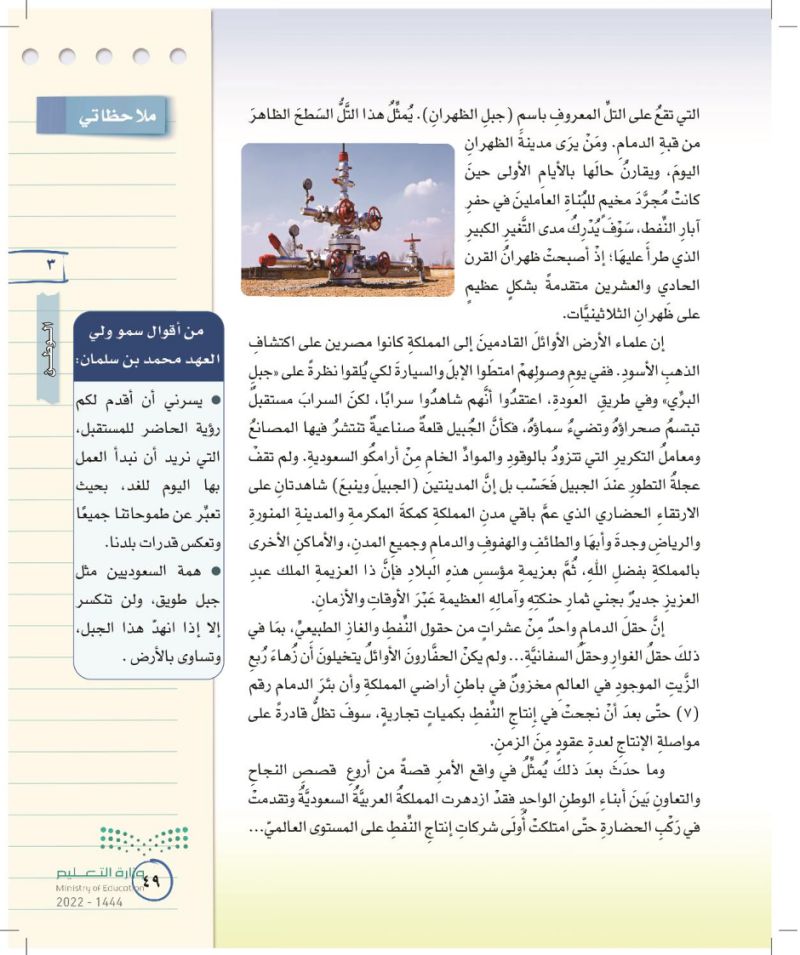 التي تقعُ على التلِّ المعروفِ باسمِ (جبلِ الظهرانِ). يُمثِّلُ هذا التَّلُّ السَطحَ الظاهرَ
من قبةِ الدمامِ. ومَنْ يرَى مدينةَ الظهرانِ
اليومَ، ويقارنُ حالَها بالأيامِ الأولى حينَ
كانتْ مُجرَّدَ مخيمٍ للبُناةِ العاملينَ في حفرِ
آبارِ النِّفط، سَوْفَ يُدْرِكُ مدى التَّغيرِ الكبيرِ
الذي طرأَ عليهَا؛ إذْ أصبحتْ ظهرانُ القرن
الحادي والعشرين متقدمةً بشكلٍ عظيمٍ
على ظَهرانِ الثلاثينيَّات.
إن علماء الأرض الأوائلَ القادمينَ إلى المملكةِ كانوا مصرين على اكتشافِ
الذهبِ الأسودِ. ففي يومِ وصولِهمْ امتطَوا الإبلَ والسيارةَ لكي يُلقوا نظرةً على «جبلِ
البرِّي» وفي طريقِ العودةِ، اعتقدُوا أنَّهم شاهدُوا سرابًا، لكنَ السرابَ مستقبلٌ
تبتسمُ صحراؤُهُ وتضيءُ سماؤُهُ، فكأنَّ الجُبيل قلعةٌ صناعيةٌ تنتشرُ فيها المصانعُ
ومعاملُ التكريرِ التي تتزودُ بالوقودِ والموادِّ الخامِ مِنْ أرامكو السعوديةِ. ولم تقفْ
عجلةُ التطورِ عندَ الجبيل فَحَسْب بل إنَّ المدينتينِ (الجبيلَ وينبعَ) شاهدتانِ على
الارتقاءِ الحضاري الذي عمَّ باقي مدنِ المملكةِ كمكةَ المكرمةِ والمدينةِ المنورةِ
والرياضِ وجدةَ وأبهَا والطائفِ والهفوفِ والدمامِ وجميعِ المدنِ، والأماكنِ الأخرى
بالمملكةِ بفضلِ اللهِ، ثُمَّ بعزيمةِ مؤسسِ هذهِ البلادِ فإنَّ ذا العزيمةِ الملك عبدِ
العزيزِ جديرٌ بجني ثمارِ حنكتِهِ وآمالِهِ العظيمةِ عَبْرَ الأوقاتِ والأزمانِ.
إنَّ حقلَ الدمامِ واحدٌ مِنْ عشراتٍ من حقول النِّفطِ والغازِ الطبيعيِّ، بمَا في
ذلكَ حقلُ الغوارِ وحقلُ السفانيَّةِ... ولم يكنْ الحفَّارونَ الأوائلُ يتخيلونَ أن زُهاءَ رُبعِ
الزَّيتِ الموجودِ في العالمِ مخزونٌ في باطنِ أراضي المملكةِ وأن بئرَ الدمام رقم
(٧) حتّى بعدَ أنْ نجحتْ في إنتاجِ النِّفطِ بكمياتٍ تجاريةٍ، سوفَ تظلُّ قادرةً على
مواصلةِ الإنتاجِ لعدةِ عقودٍ مِنَ الزمنِ.
وما حدَثَ بعدَ ذلكَ يُمثِّلُ في واقعِ الأمرِ قصةً من أروعِ قصصِ النجاحِ
والتعاونِ بَينَ أبناءِ الوطنِ الواحدِ فقدْ ازدهرت المملكةُ العربيَّةُ السعوديَّةُ وتقدمتْ
في رَكْبِ الحضارةِ حتّى امتلكتْ أُولَى شركاتِ إنتاجِ النِّفطِ على المستوى العالميّ...
ملاحظاتي
٣
الوطن
من أقوال سمو ولي
العهد محمد بن سلمان:
● يسرني أن أقدم لكم
رؤية الحاضر للمستقبل،
التي نريد أن نبدأ العمل
بها اليوم للغد، بحيث
تعبِّر عن طموحاتنا جميعًا
وتعكس قدرات بلدنا.
● همة السعوديين مثل
جبل طويق، ولن تنكسر
إلا إذا انهدّ هذا الجبل،
وتساوى بالأرض .
وزارة التعليم
Ministry of Education
2022 - 1444
٤٩